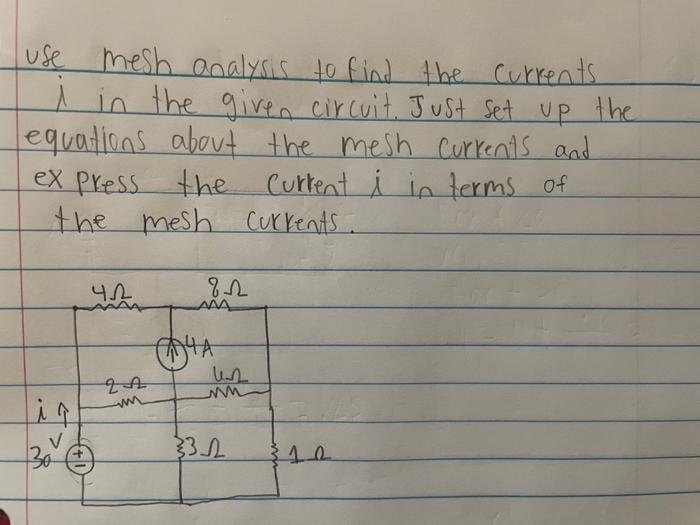 use mesh analysis to find the currents
i in the given circuit. Just set up the
equations about the mesh currents and
express the current i in terms of
the mesh currents.
4Ω 8Ω
4A
2Ω
i
30 V + -
3Ω 1Ω